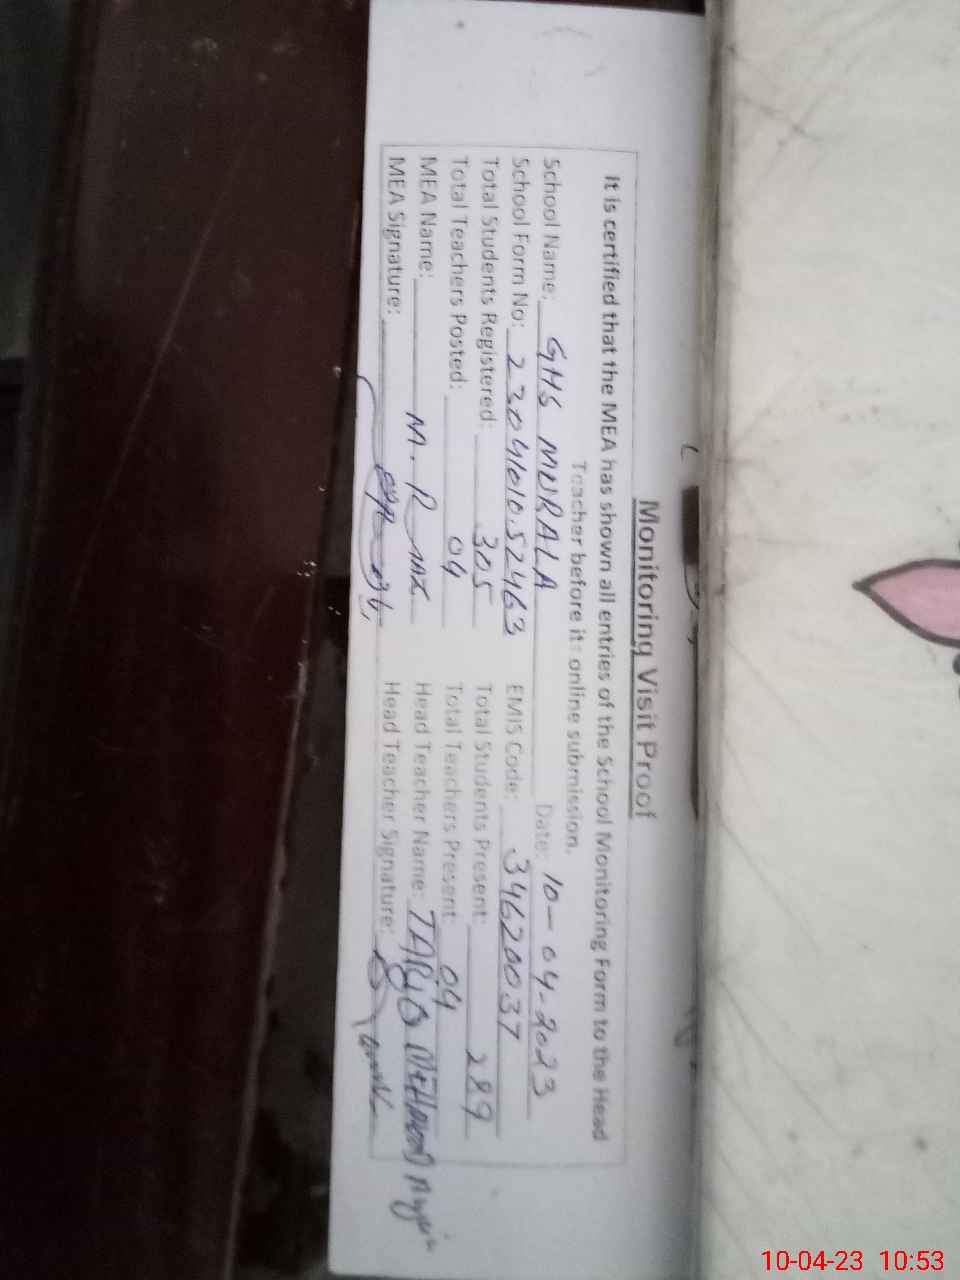 Monitoring Visit Proof
It is certified that the MEA has shown all entries of the School Monitoring Form to the Head
Teacher before its online submission.
School Name: GHS MURALA Date: 10-04-2023
School Form No: 2304101052463 EMIS Code: 34620037
Total Students Registered: 305 Total Students Present: 289
Total Teachers Posted: 04 Total Teachers Present: 04
MEA Name: M. R Head Teacher Name: TARIQ MEHMOOD
MEA Signature: Head Teacher Signature:
10-04-23 10:53